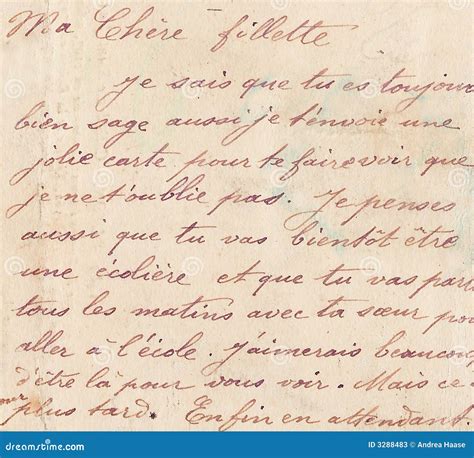 Ma Chère fillette
Je sais que tu es toujour
bien sage aussi je t'envoie une
jolie carte pour te faire voir que
je ne t'oublie pas. Je penses
aussi que tu vas bientôt être
une écolière et que tu vas part
tous les matins avec ta sœur pou
aller à l'école. J'aimerais beaucou
d'être là pour vous voir. Mais ce
plus tard. Enfin en attendant.
dreamstime.com
ID 3288483 © Andrea Haase